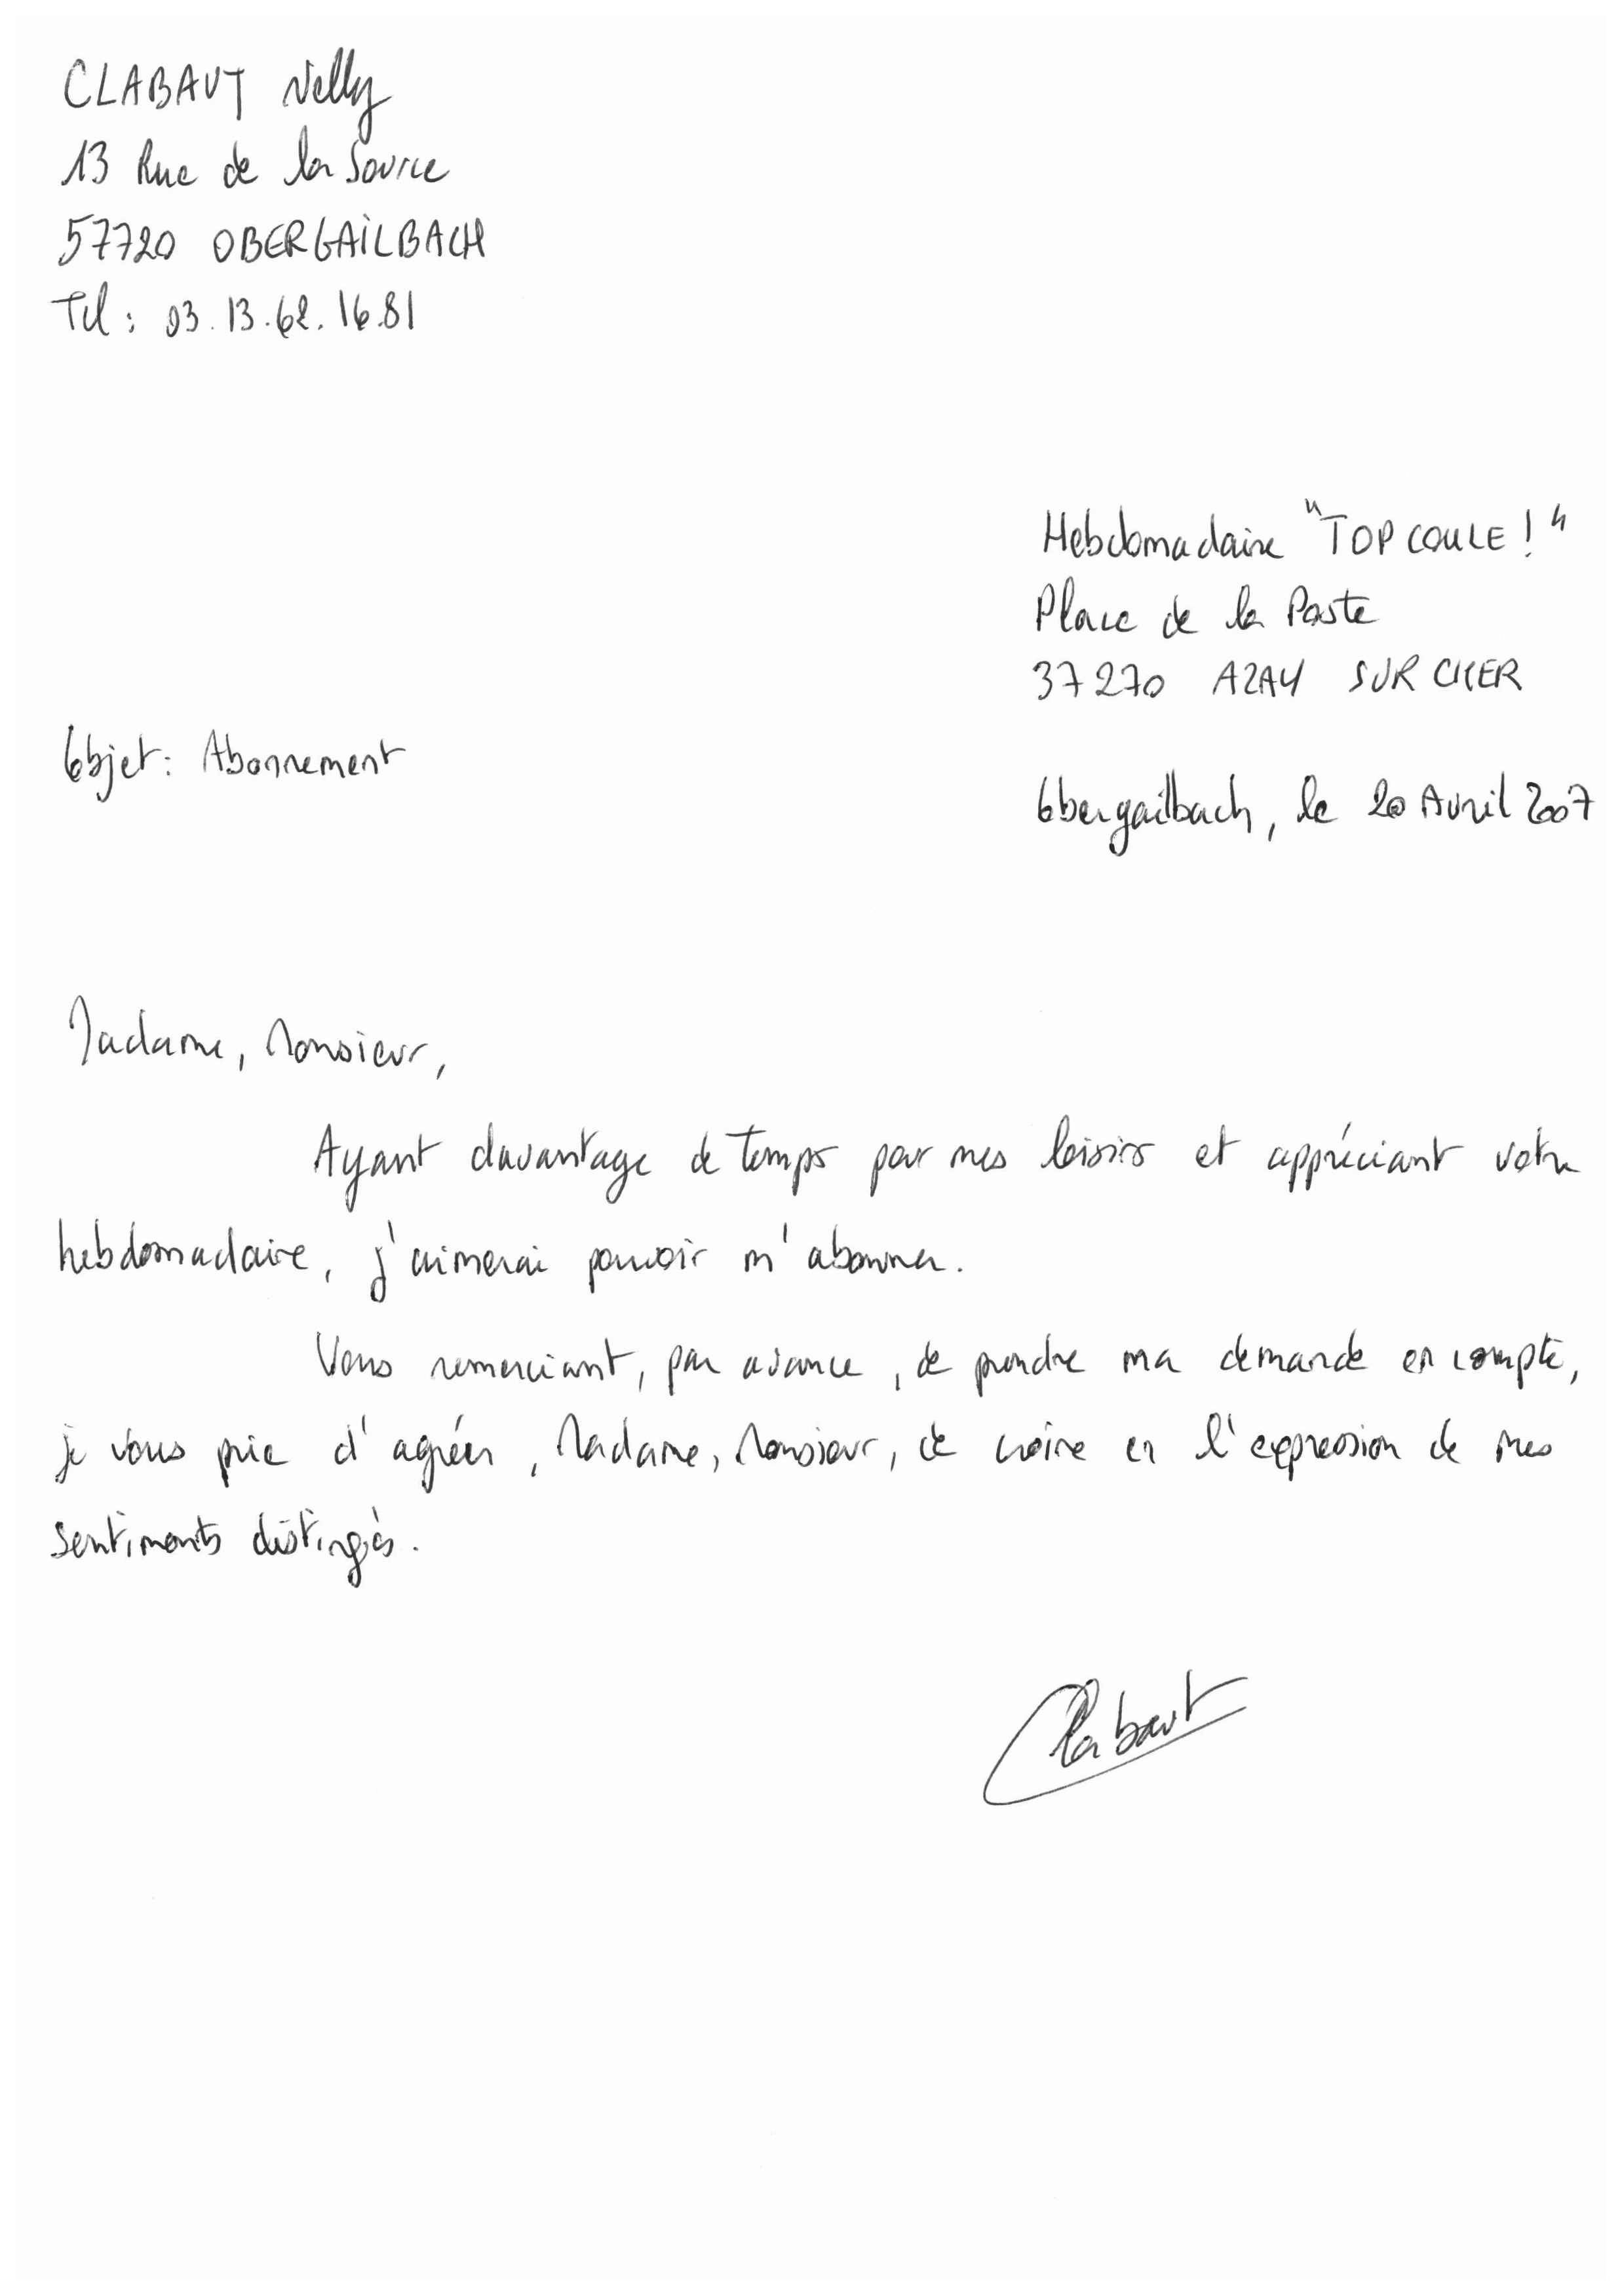 CLABAUT Nelly
13 Rue de la Source
57720 OBERGAILBACH
Tel : 03.13.62.16.81
Hebdomadaire "TOP COULE !"
Place de la Poste
37270 AZAY SUR CHER
Objet : Abonnement
Obergailbach, le 20 Avril 2007
Madame, Monsieur,
Ayant davantage de temps pour mes loisirs et appréciant votre
hebdomadaire, j'aimerai pouvoir m'abonner.
Vous remerciant, par avance, de prendre ma demande en compte,
je vous prie d'agréer, Madame, Monsieur, de croire en l'expression de mes
sentiments distingés.
Clabaut